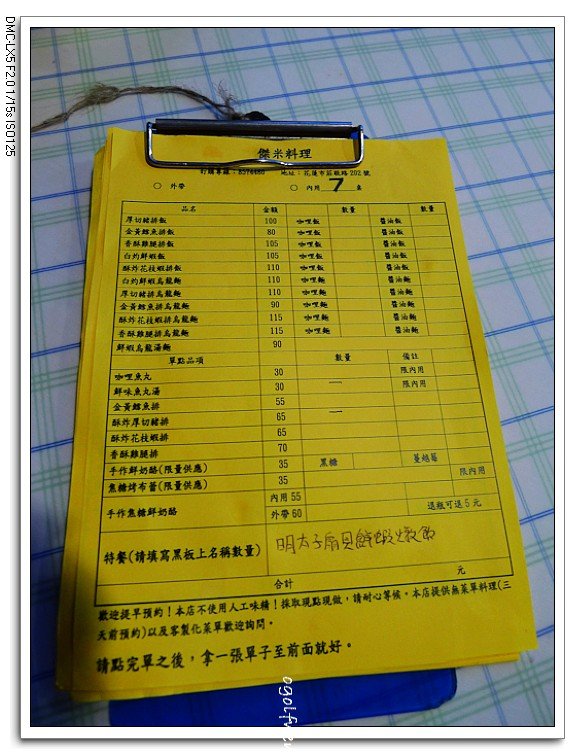 DMC-LX5 F2.0 1/15s ISO125
傑米料理
訂購專線：8574460 地址：花蓮市莊敬路202號
○ 外帶 ○ 內用 7 桌
品名 金額 數量 數量
厚切豬排飯 100 咖哩飯 醬油飯
金黃鱈魚排飯 80 咖哩飯 醬油飯
香酥雞腿排飯 105 咖哩飯 醬油飯
白灼鮮蝦飯 105 咖哩飯 醬油飯
酥炸花枝蝦排飯 110 咖哩飯 醬油飯
白灼鮮蝦烏龍麵 110 咖哩麵 醬油麵
厚切豬排烏龍麵 110 咖哩麵 醬油麵
金黃鱈魚排烏龍麵 90 咖哩麵 醬油麵
酥炸花枝蝦排烏龍麵 115 咖哩麵 醬油麵
香酥雞腿排烏龍麵 115 咖哩麵 醬油麵
鮮蝦烏龍湯麵 90
單點品項 數量 備註
咖哩魚丸 30 限內用
鮮味魚丸湯 30 一 限內用
金黃鱈魚排 55
酥炸厚切豬排 65 一
酥炸花枝蝦排 65
香酥雞腿排 70
手作鮮奶酪(限量供應) 35 黑糖 蔓越莓
焦糖烤布蕾(限量供應) 35 限內用
手作焦糖鮮奶酪 內用 55
外帶 60 退瓶可退 5 元
特餐(請填寫黑板上名稱數量) 明太子扇貝鮮蝦燉飯
合計 元
歡迎提早預約！本店不使用人工味精！採取現點現做，請耐心等候。本店提供無菜單料理(三
天前預約)以及客製化菜單歡迎詢問。
請點完單之後，拿一張單子至前面就好。